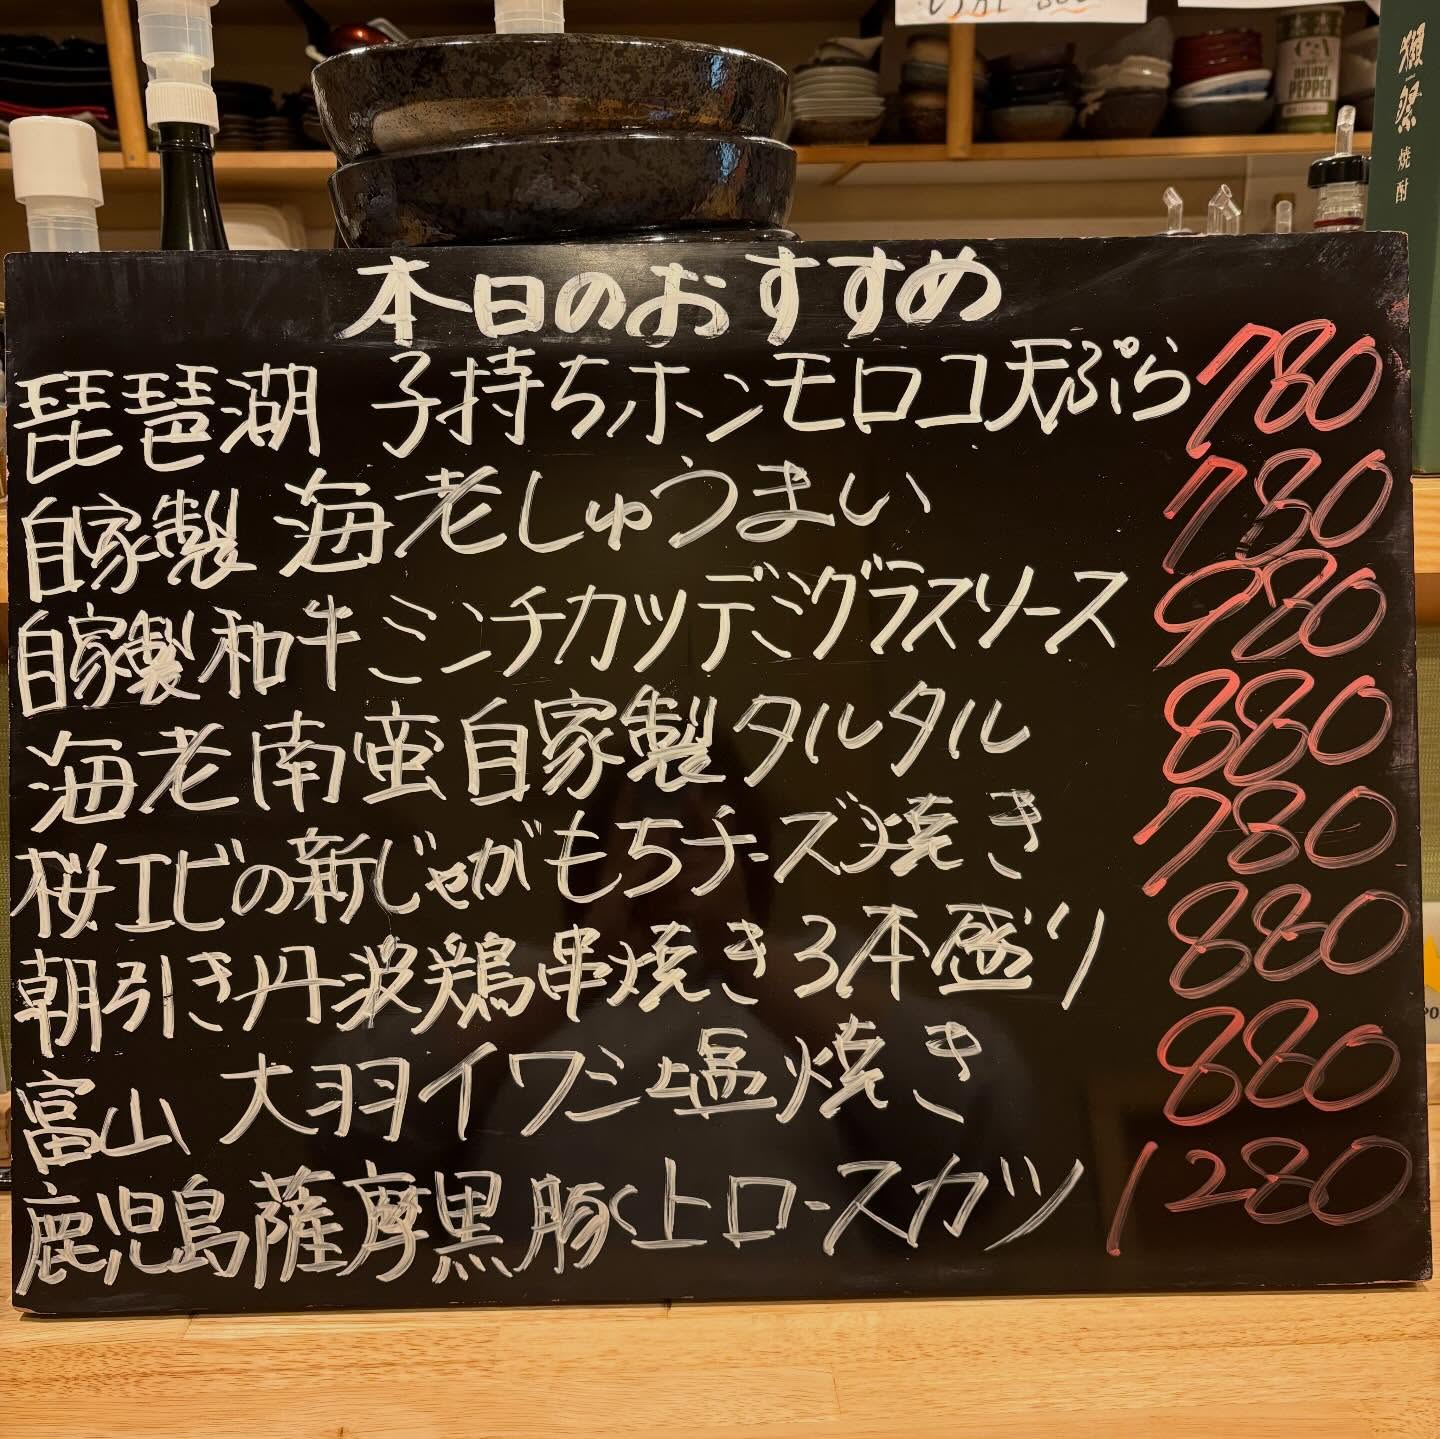 獺祭
焼酎
PEPPER
本日のおすすめ
琵琶湖 子持ちホンモロコ天ぷら 780
自家製 海老しゅうまい 780
自家製和牛ミンチカツデミグラスソース 980
海老南蛮自家製タルタル 880
桜エビの新じゃがもちチーズ焼き 780
朝引き丹波鶏串焼き3本盛り 880
富山 大羽イワシ塩焼き 880
鹿児島薩摩黒豚上ロースカツ 1280